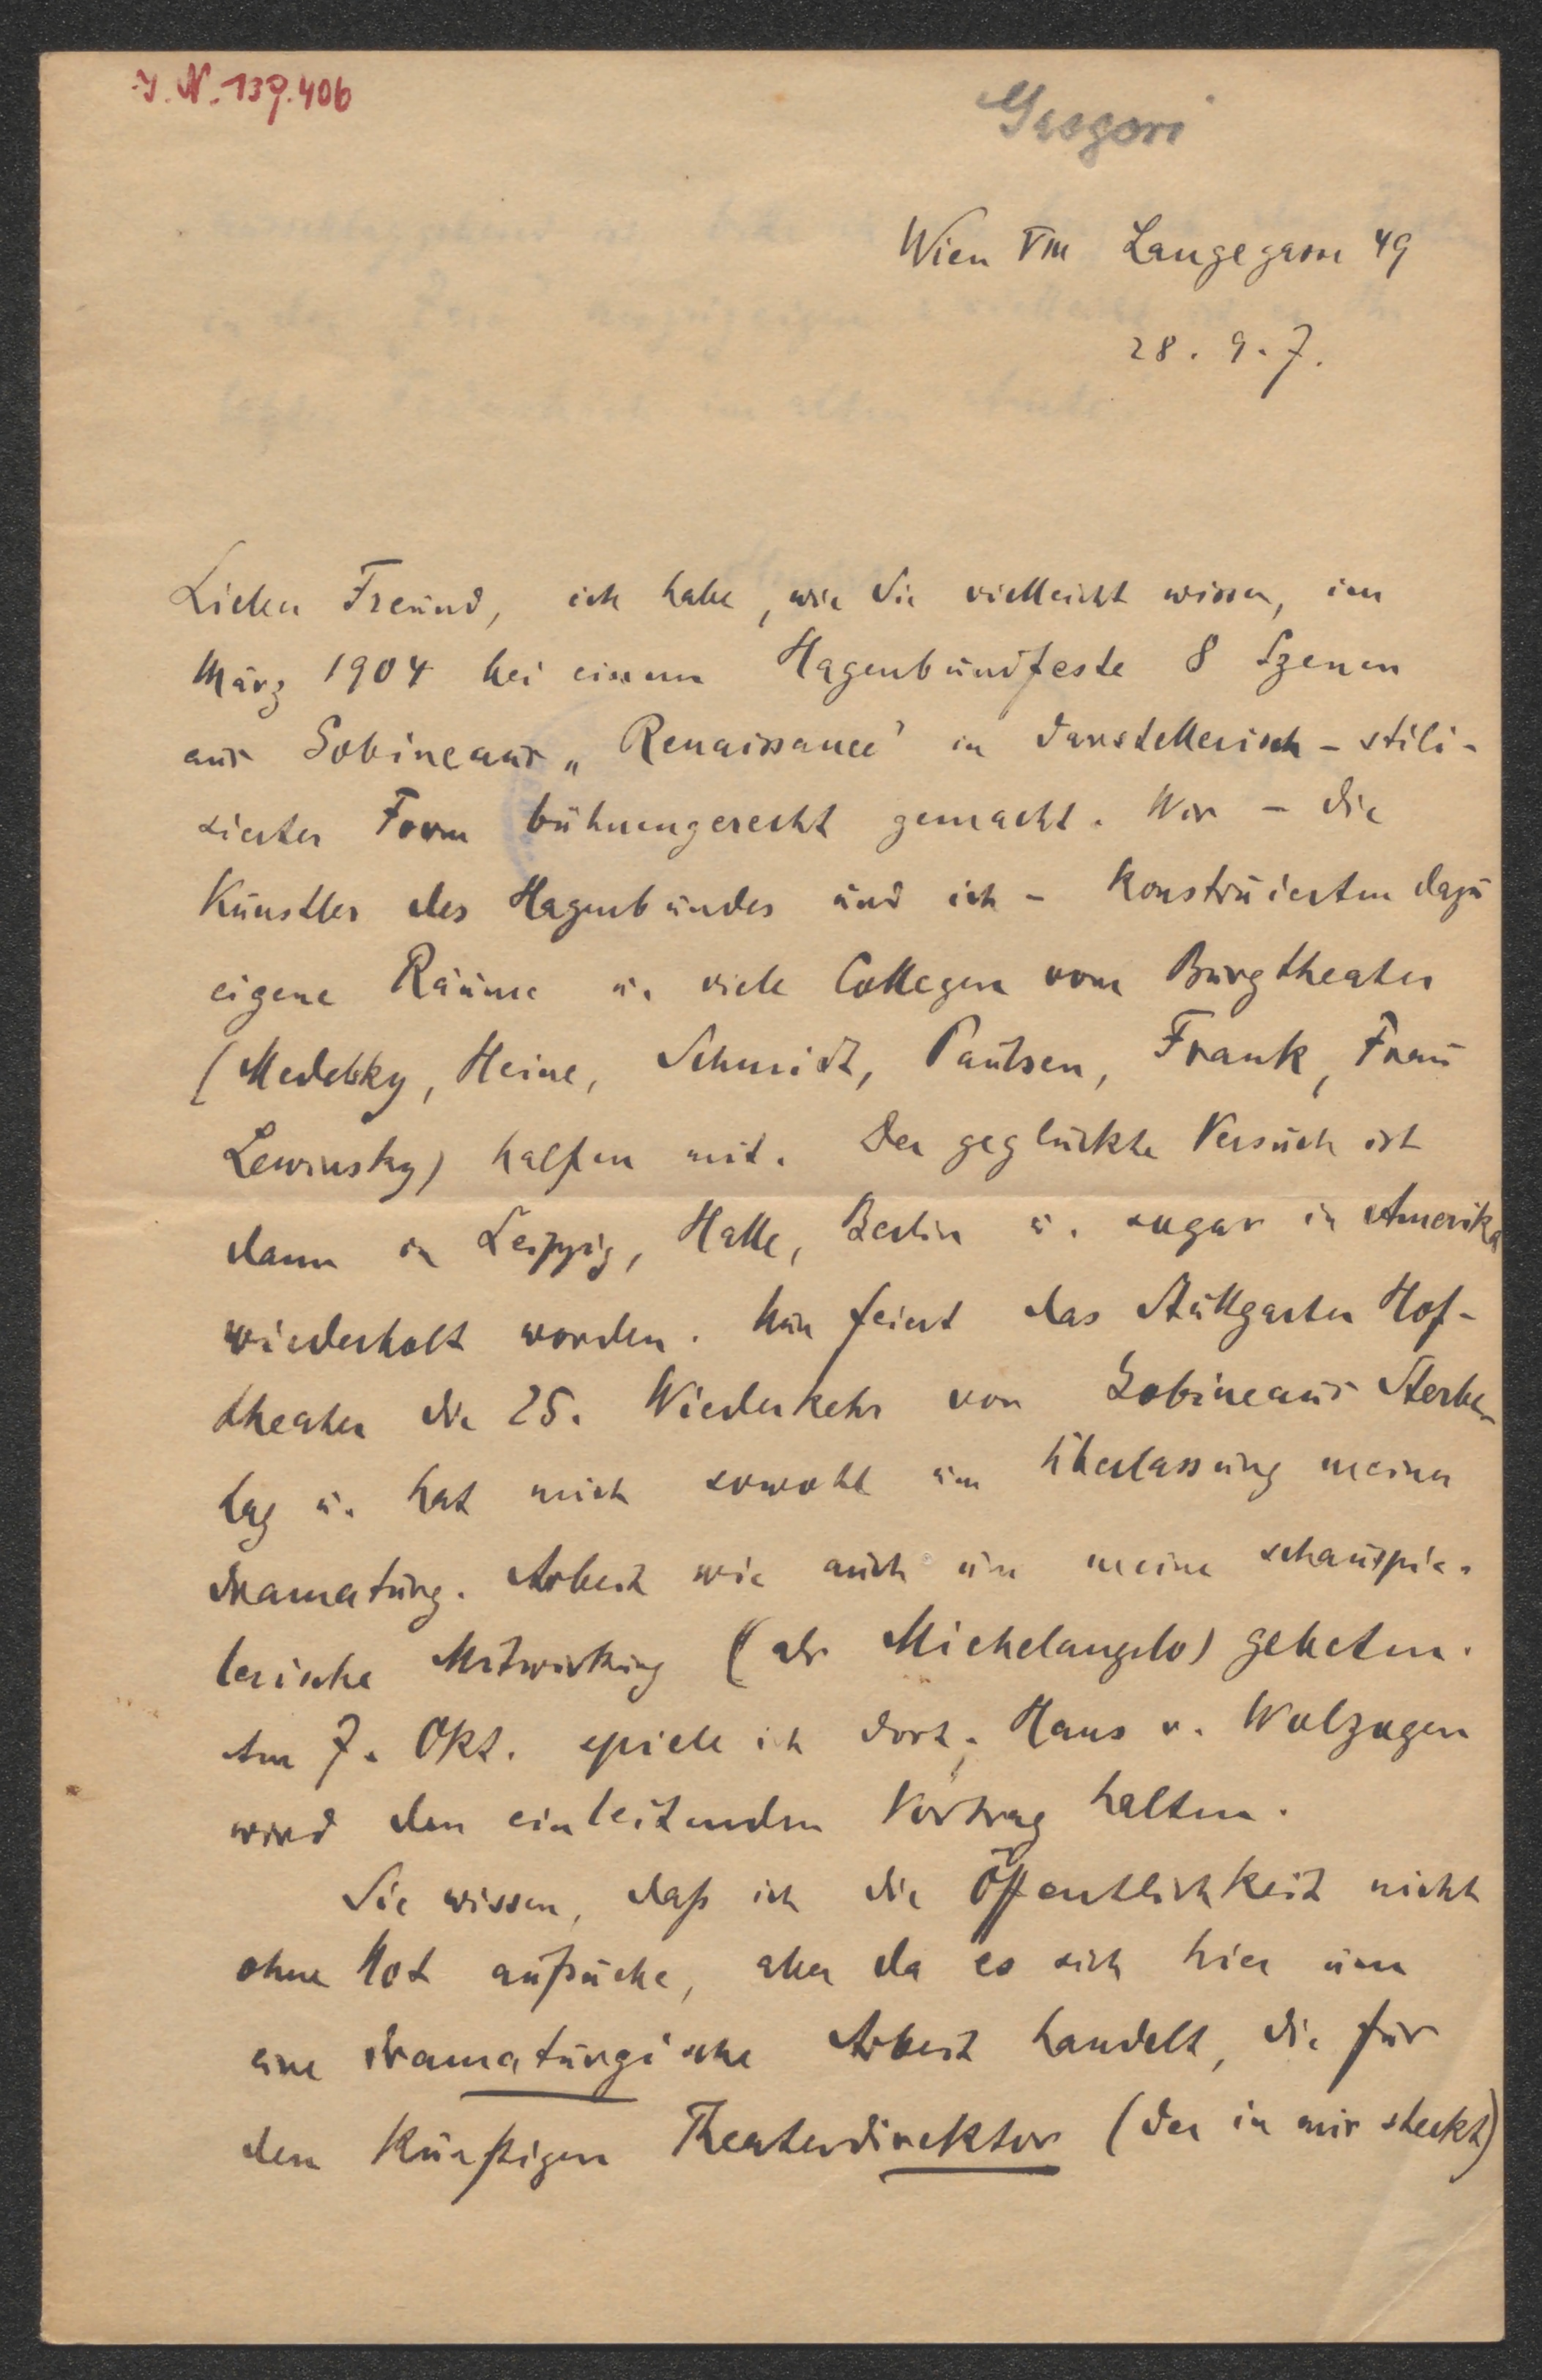 I. N. 139.406
Gregori
Wien VIII Langegasse 49
28. 9. 7.
Lieber Freund, ich habe, wie Sie vielleicht wissen, im
März 1904 bei einem Hagenbundfeste 8 Szenen
aus Gobineaus „Renaissance" in darstellerisch-stili-
sierter Form bühnengerecht gemacht. Wir – die
Künstler des Hagenbundes und ich – konstruierten dazu
eigene Räume u. viele Collegen vom Burgtheater
(Medelsky, Heine, Schmidt, Paulsen, Frank, Frau
Lewinsky) halfen mit. Der geglückte Versuch ist
dann in Leipzig, Halle, Berlin u. sogar in Amerika
wiederholt worden. Nun feiert das Stuttgarter Hof-
theater die 25. Wiederkehr von Gobineaus Sterbe-
tag u. hat mich sowohl um Überlassung meiner
dramaturg. Arbeit wie auch um meine schauspie-
lerische Mitwirkung (als Michelangelo) gebeten.
Am 7. Okt. spiele ich dort; Hans v. Wolzogen
wird den einleitenden Vortrag halten.
Sie wissen, daß ich die Öffentlichkeit nicht
ohne Not aufsuche, aber da es sich hier um
eine dramaturgische Arbeit handelt, die für
den künftigen Theaterdirektor (der in mir steckt)